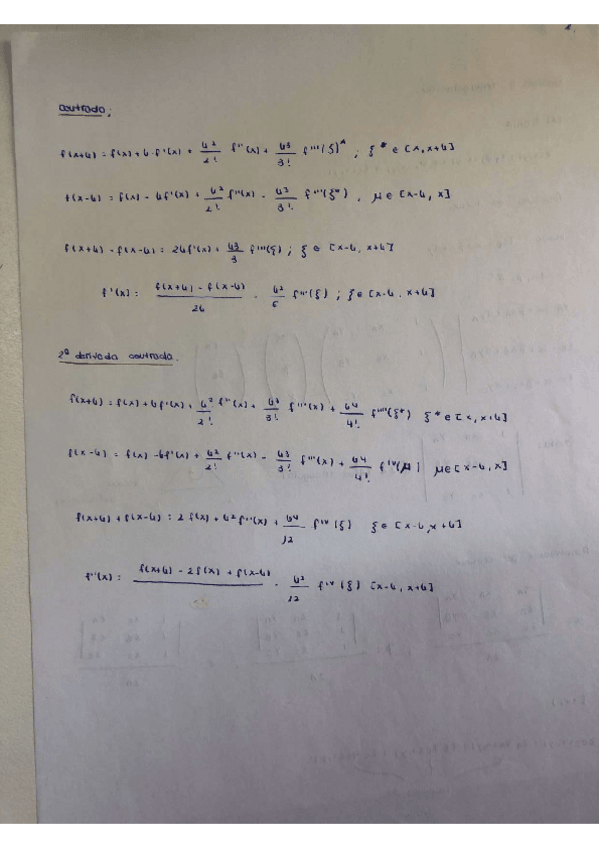 centrada:
f(x+h) = f(x) + h·f'(x) + h²/2! f''(x) + h³/3! f'''(ξ)* ; ξ* ∈ [x, x+h]
f(x-h) = f(x) - hf'(x) + h²/2! f''(x) - h³/3! f'''(ξ*) , μ ∈ [x-h, x]
f(x+h) - f(x-h) = 2hf'(x) + h³/3 f'''(ξ) ; ξ ∈ [x-h, x+h]
f'(x) = f(x+h) - f(x-h)/2h - h²/6 f'''(ξ) ; ξ ∈ [x-h, x+h]
2ª derivada centrada.
f(x+h) = f(x) + hf'(x) + h²/2! f''(x) + h³/3! f'''(x) + h4/4! f''''(ξ*) ξ* ∈ [x, x+h]
f(x-h) = f(x) - hf'(x) + h²/2! f''(x) - h³/3! f'''(x) + h4/4! f'v(μ) μ ∈ [x-h, x]
f(x+h) + f(x-h) = 2f(x) + h²f''(x) + h4/12 f'v(ξ) ξ ∈ [x-h, x+h]
f''(x) = f(x+h) - 2f(x) + f(x-h) - h²/12 f'v(ξ) [x-h, x+h]